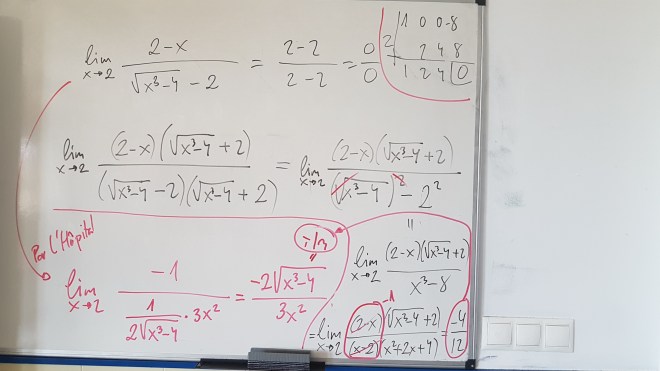 lim x→2 (2-x)/(√(x³-4) - 2) = (2-2)/(2-2) = 0/0
1 0 0 -8
2 2 4 8
1 2 4 0
lim x→2 (2-x)(√(x³-4)+2)/((√(x³-4)-2)(√(x³-4)+2)) = lim x→2 (2-x)(√(x³-4)+2)/((√(x³-4))² - 2²)
=
lim x→2 (2-x)(√(x³-4)+2)/(x³-8)
= lim x→2 (2-x)/(x-2) -1 (√(x³-4)+2)/(x²+2x+4) = -4/12
Por L'Hôpital
lim x→2 -1/(1/(2√(x³-4)) · 3x²) = -2√(x³-4)/(3x²)
=